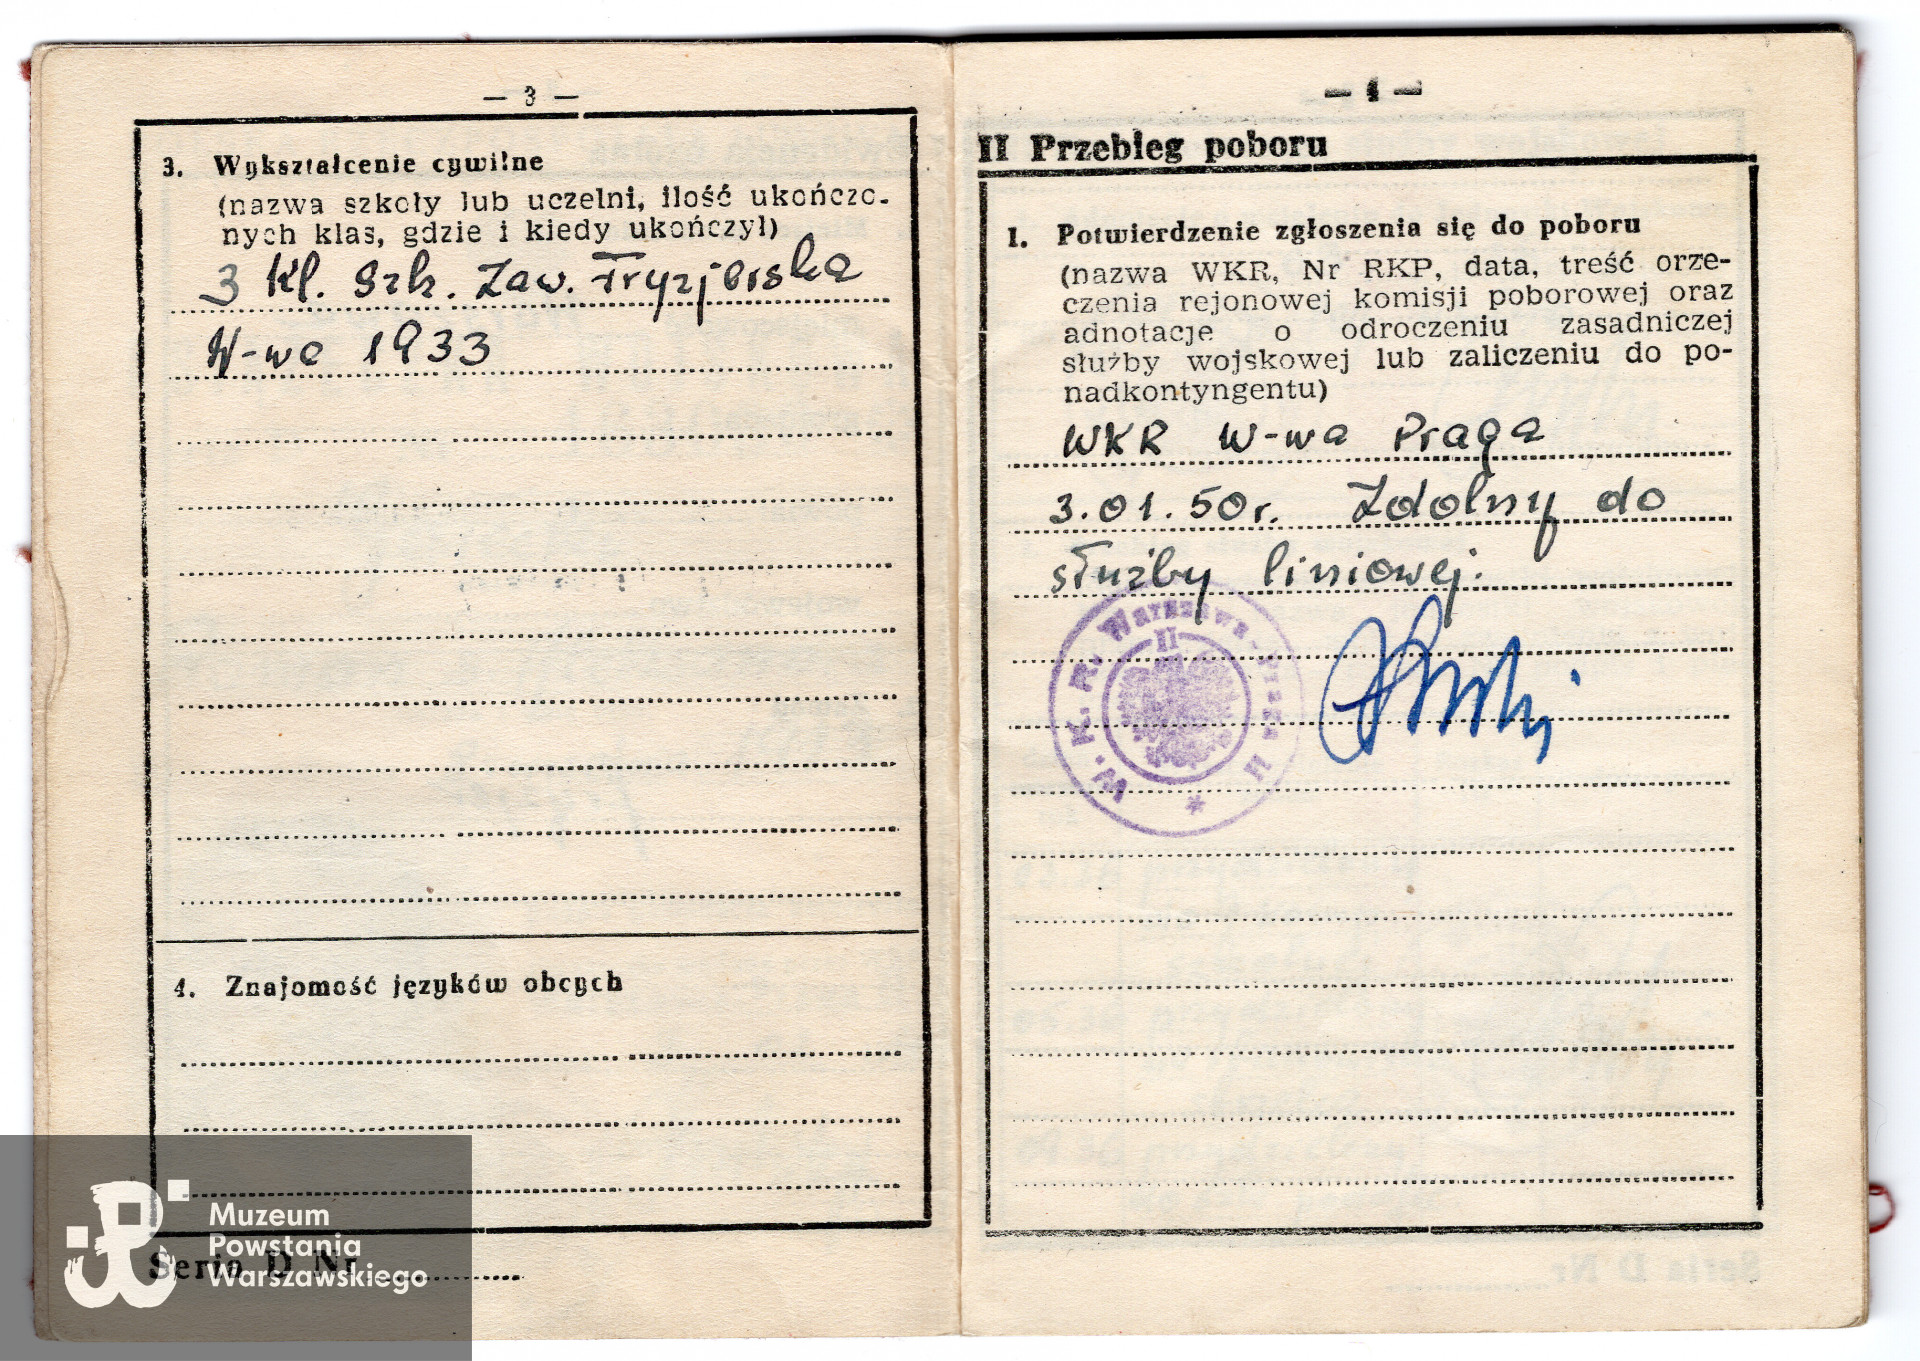 — 3 —
3. Wykształcenie cywilne
(nazwa szkoły lub uczelni, ilość ukończo-
nych klas, gdzie i kiedy ukończył)
3 kl. Szk. Zaw. Fryzjerska
W-wa 1933
4. Znajomość języków obcych
Seria D Nr
Muzeum
Powstania
Warszawskiego
— 4 —
II Przebieg poboru
1. Potwierdzenie zgłoszenia się do poboru
(nazwa WKR, Nr RKP, data, treść orze-
czenia rejonowej komisji poborowej oraz
adnotacje o odroczeniu zasadniczej
służby wojskowej lub zaliczeniu do po-
nadkontyngentu)
WKR W-wa Praga
3.01.50r. Zdolny do
służby liniowej.
W. K. R. Warszawa-Praga II
II